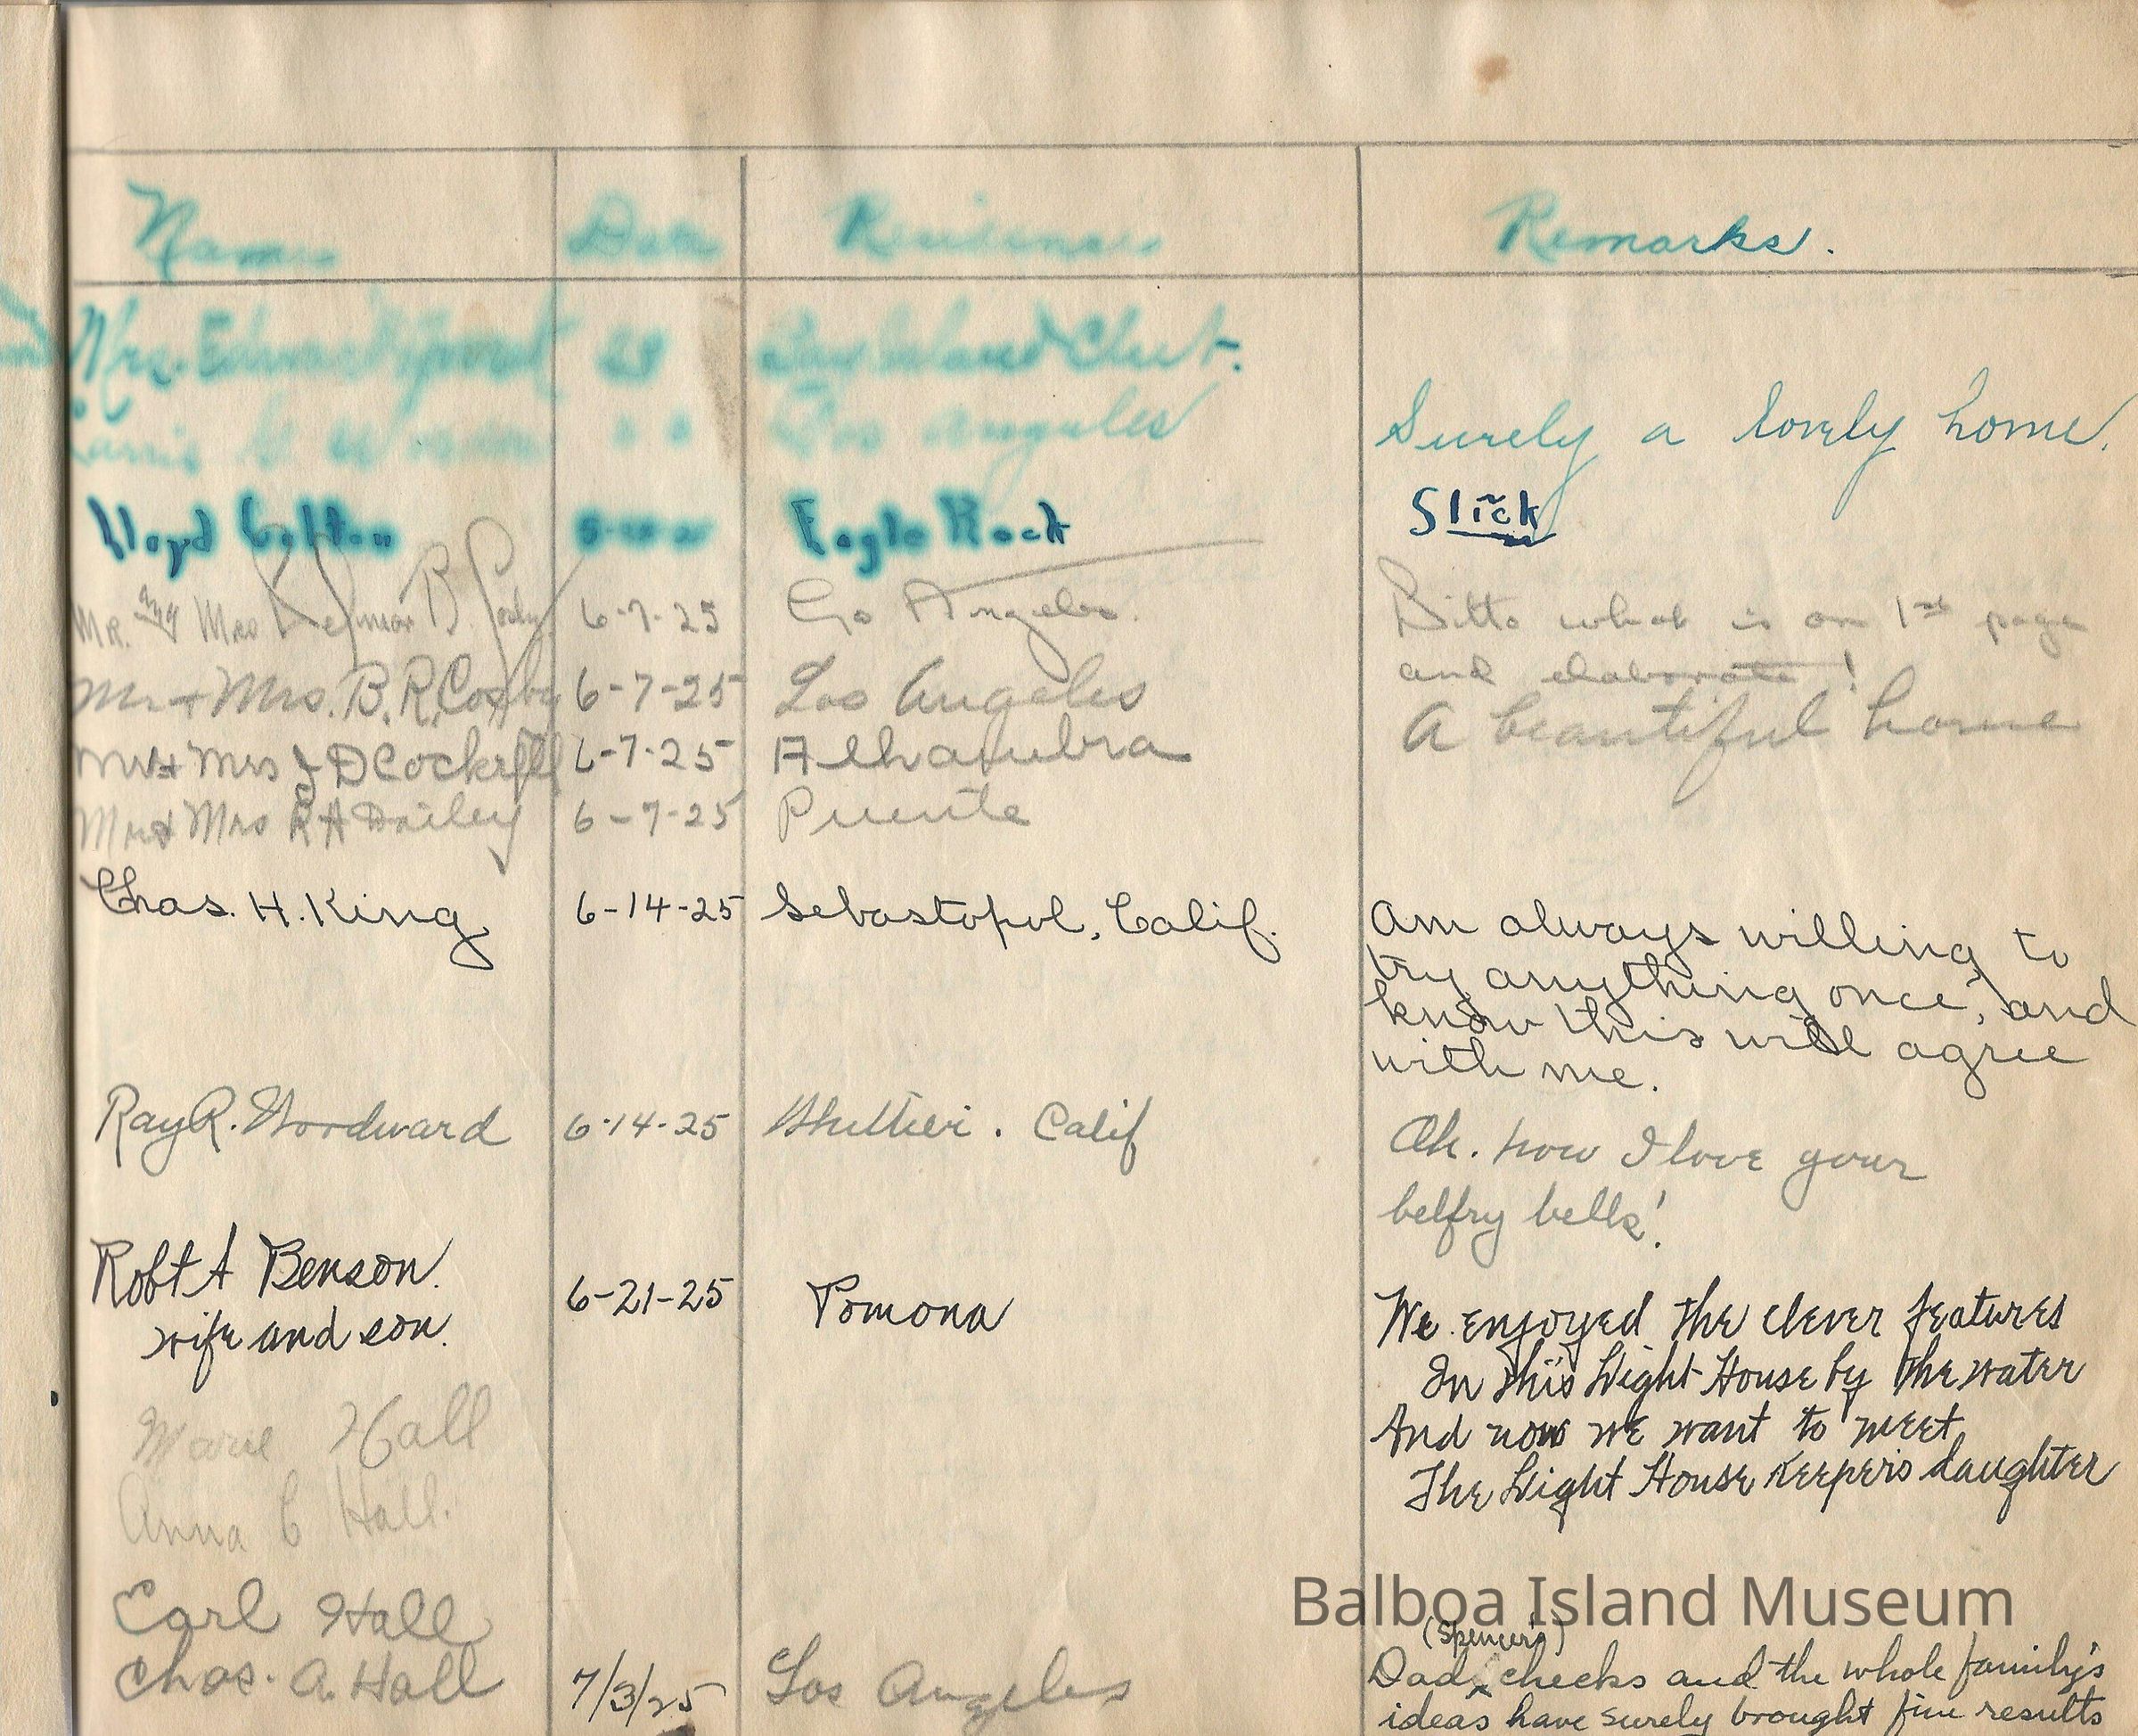 Names Date Residence Remarks.
Mrs. Edward
Los Angeles Surely a lovely home.
Lloyd Colton Eagle Rock Slick
Mr. and Mrs Delmar B. Cosby 6-7-25 Los Angeles. Ditto what is on 1st page
and elaborate!
Mr + Mrs. B. R. Cosby 6-7-25 Los Angeles A beautiful home
Mr + Mrs J D Cockrell 6-7-25 Alhambra
Mr & Mrs R A Bailey 6-7-25 Puente
Chas. H. King 6-14-25 Sebastopol, Calif. Am always willing to
try anything once, and
know this will agree
with me.
Ray R. Woodward 6-14-25 Whittier. Calif Oh. how I love your
belfry bells!
Robt A Benson. 6-21-25 Pomona We enjoyed the clever features
wife and son. In this Light House by the water
And now we want to meet
The Light House Keeper's daughter
Marie Hall
Anna C Hall.
Carl Hall
Balboa Island Museum
(Spencer's)
Chas. A. Hall 7/3/25 Los Angeles Dad checks and the whole family's
ideas have surely brought fine results